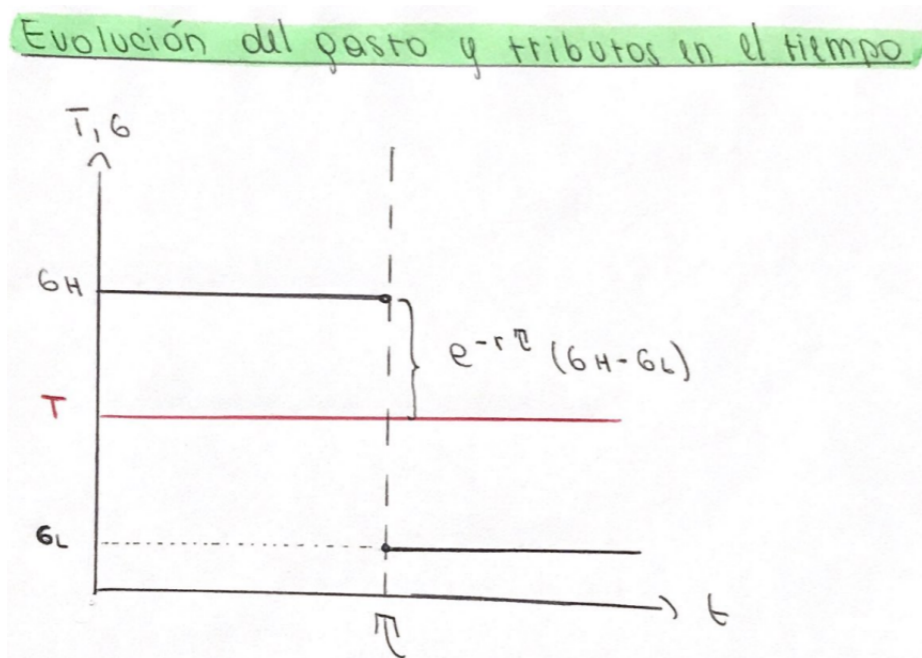 Evolución del gasto y tributos en el tiempo
T, G
GH
e^-rτ (GH-GL)
T
GL
t
τ